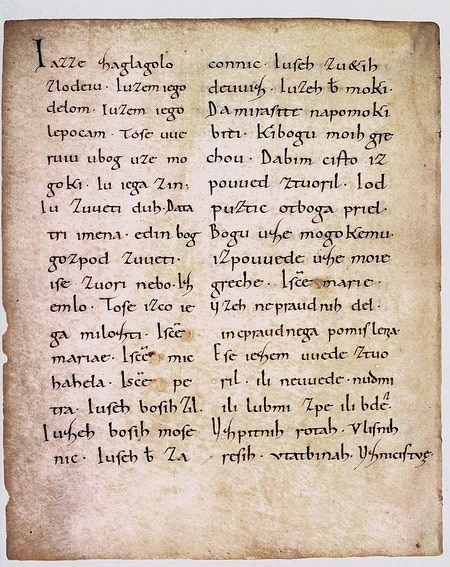 Iazze zaglagolo
zlodeiu· Iuzem iego
delom· Iuzem iego
lepocam· Tose uue
ruiu ubog uze mo
goki· Iu iega zin;
Iu zuueti duh· Data
tri imena· edin bog
gozpod zuueti·
ise zuori nebo· Iz
emlo· Tose izco ie
ga milozti· Isc̄e
mariae· Isc̄e mic
hahela· Isc̄e pe
tra· Iuseh bosih zil·
Iuzeh bosih mose
nic· Iuseh ƀ za
connic· Iuseh zu&ih
deuuiz· Iuzeh ƀ moki·
Da mirasite napomoki
biti· Kibogu moih gre
chou· Dabim cisto iz
pouued ztuoril· Iod
puztic otboga priel·
Bogu uze mogokemu·
izpouuede uze moie
greche· Isc̄e marie·
uzeh nepraudnih del·
inepraudnega pomislena·
Ese iezem uuede ztuo
ril· ili neuuede· nudmi
ili lubmi zpe ili bdē·
Uzpitnih rotah· Vlisnih
resih· vtatbinah· Uzmicistue·